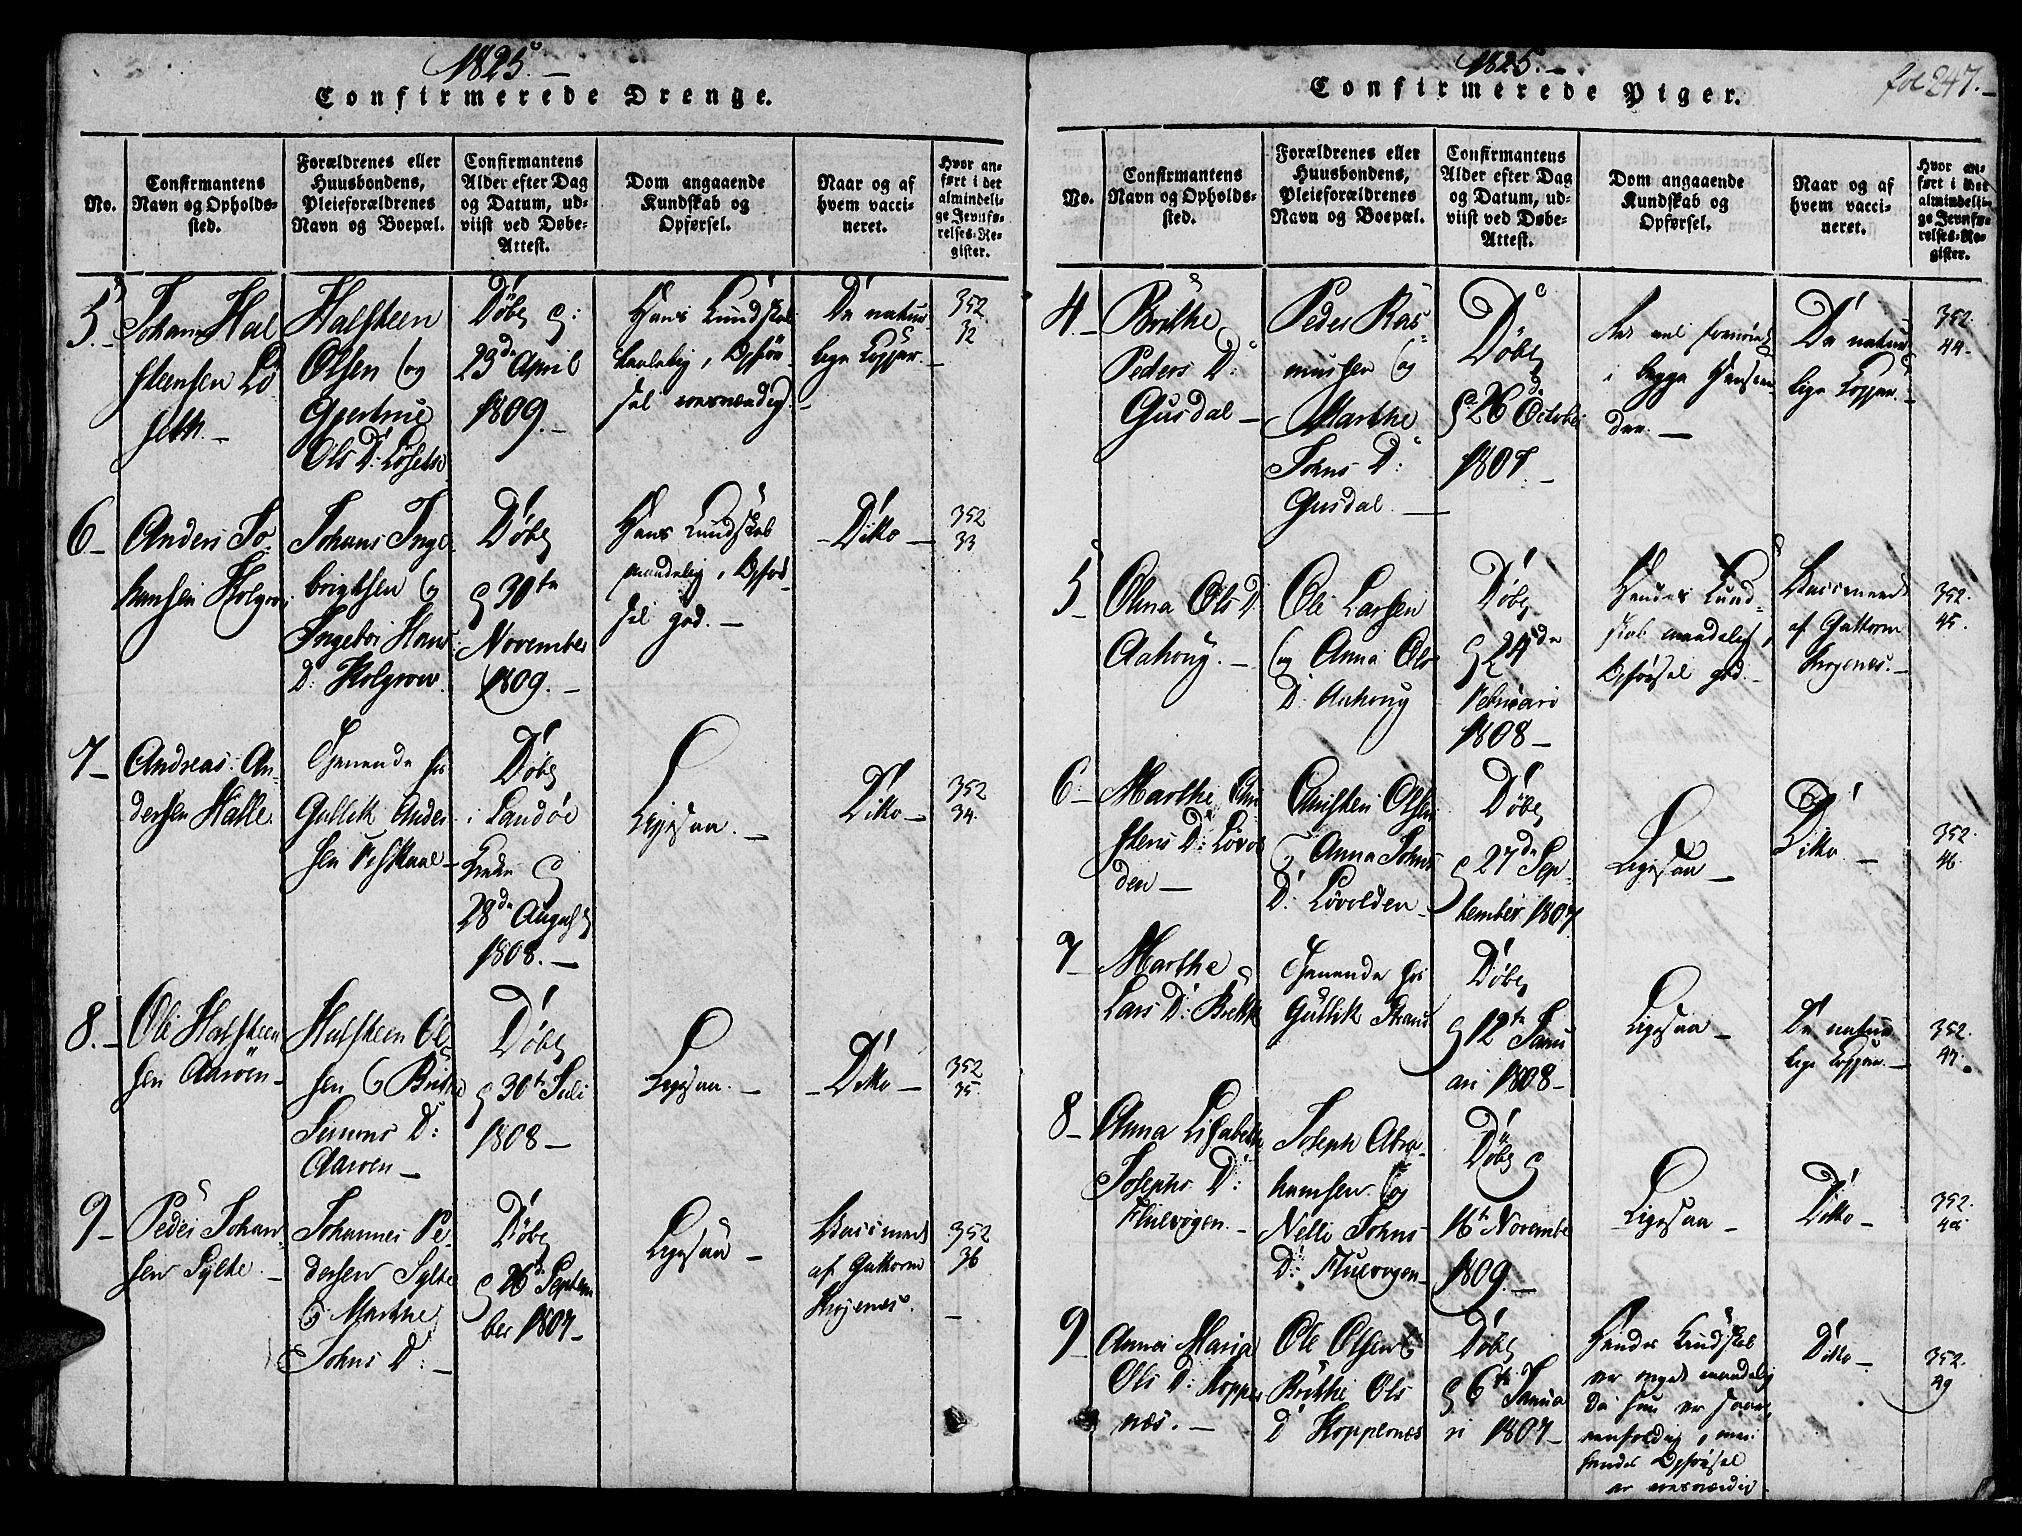 1825.
Confirmerede Drenge.
No.
Confirmantens
Navn og Opholds-
sted.
Forældrenes eller
Huusbondens,
Pleieforældrenes
Navn og Boepæl.
Confirmantens
Alder efter Dag
og Datum, ud-
viist ved Døbe-
Attest.
Dom angaaende
Kundskab og
Opførsel.
Naar og af
hvem vacci-
neret.
Hvor an-
ført i det
almindeli-
ge Jevnfø-
relses-Re-
gister.
5.
Johan Hal
steensen Lø
seth.
Halsteen
Olsen og
Gjertrue
Ols D: Løseth
Døbt d:
23de April
1809.
Hans Kundskab
maadelig, Opfør-
sel
Da natur-
lige Kopper.
352
32
6
Anders Jo-
hansen Holgrov
Johans Inge-
brigtsen og
Ingebor Hans
D: Holgrow.
Døbt
d 30te
November
1809.
Hans Kundskab
maadelig, Opfør-
sel god.
Ditto
352
33
7
Andreas An-
dersen Halle.
Tienende hos
Gullik Ander-
sen
Døbt
i Sandøe
Kirke d
28de August
1808.
Ligesaa.
Ditto
352
34.
8.
Ole Halsteen
sen Aaroen
Halsteen Ol-
sen og Brithe
Simons D:
Aaroen
Døbt
d 30te Juli
1808
Ligesaa.
Ditto
352
35.
9
Peder Johan-
sen Sylte.
Johannes Pe-
dersen Sylte
og Marthe
Johns D:
Døbt
d 26de Septem
ber 1807
Ligesaa
af Guttorm
352
36
1825.
Confirmerede Piger.
fol 247.
No.
Confirmantens
Navn og Opholds-
sted.
Forældrenes eller
Huusbondens,
Pleieforældrenes
Navn og Boepæl.
Confirmantens
Alder efter Dag
og Datum, ud-
viist ved Døbe-
Attest.
Dom angaaende
Kundskab og
Opførsel.
Naar og af
hvem vacci-
neret.
Hvor an-
ført i det
almindeli-
ge Jevnfø-
relses-Re-
gister.
4.
Brithe
Peders D:
Gusdal
Peder Ras-
mussen og
Marthe
Johns D:
Gusdal.
Døbt
d 26de October
1807.
i begge Henseen-
der.
Da natur-
lige Kopper.
352.
44.
5
Anna Ols D:
Aahoug.
Ole Larsen
og Anna Ols
D: Aahoug
Døbt
d 24de
Februari
1808
Hendes Kund-
skab maadelig,
Opførsel god.
af Guttorm
352.
45.
6
Marthe Chri
stens D: Løvol
den
Christen Olsen
og Anna Johns
D: Løvolden
Døbt
d 27de Sep-
tember 1807
Ligesaa
Ditto
352
46
7
Marthe
Lars D: Brekke
Tienende hos
Gullik Strand
Døbt
d 12te Janu
ari 1808
Ligesaa
Da natur
lige Kopper.
352.
47.
8
Anna Lisabeth
Josephs D:
Fluevogen.
Joseph Abra-
hamsen og
Nelle Johns
D: Fluevogen
Døbt d
16te Novembe
1809.
Ligesaa
Ditto
352.
48
9
Anna Maria
Ols D: Koppe
næs.
Ole Olsen og
Brithe Ols
D Koppernæs
Døbt
d 6te Janua
ri 1807
Hendes Kundskab
er meget maadelig
da hun er
eenfoldig, men
hendes Opførsel
er
Ditto
352.
49